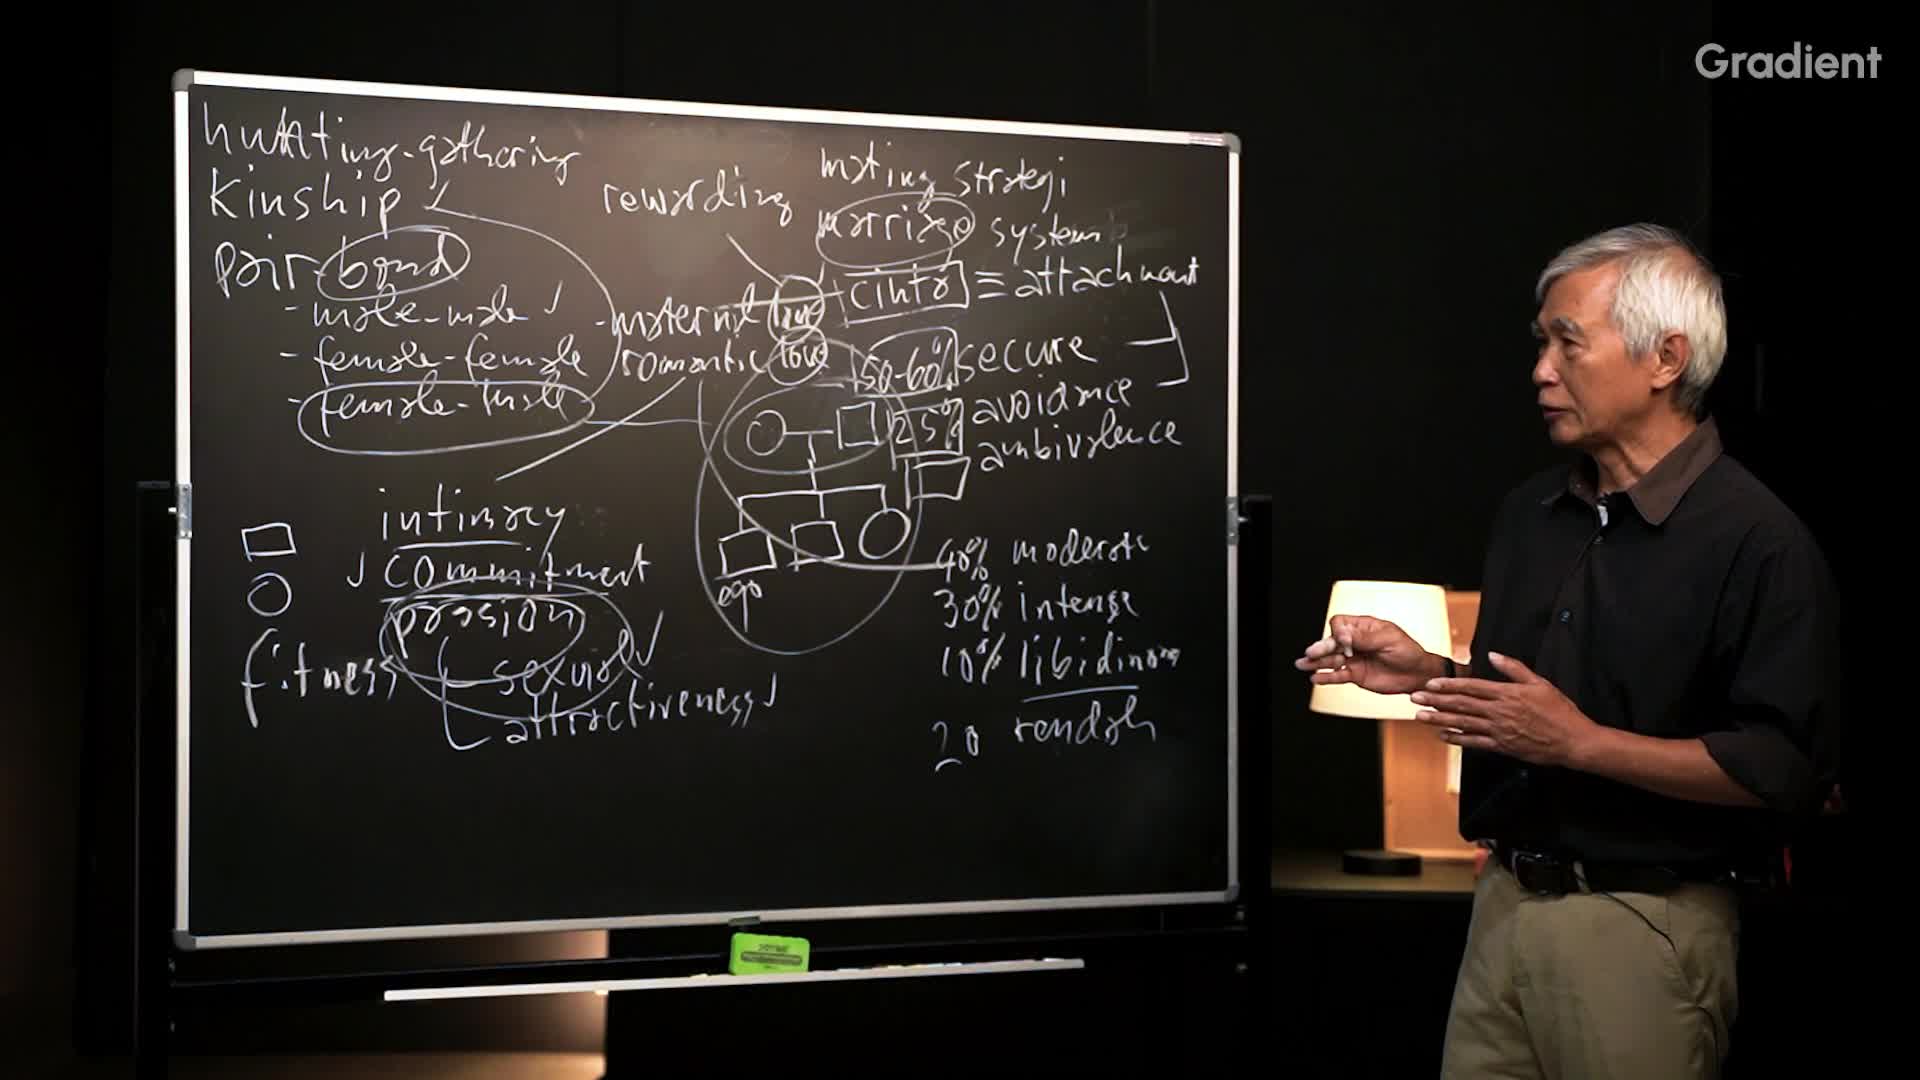 Gradient
hunting-gathering
kinship ✓
pair-bond
- male-male ✓
- female-female
- female-male
rewarding
- maternal love
romantic love
mating strategi
marriage system
cinta ≡ attachment
50-60% secure
25% avoidance
ambivalence
ego
intimacy
✓ commitment
passion
sexual ✓
attractiveness ✓
fitness
40% moderate
30% intense
10% libidinous
20 rendah